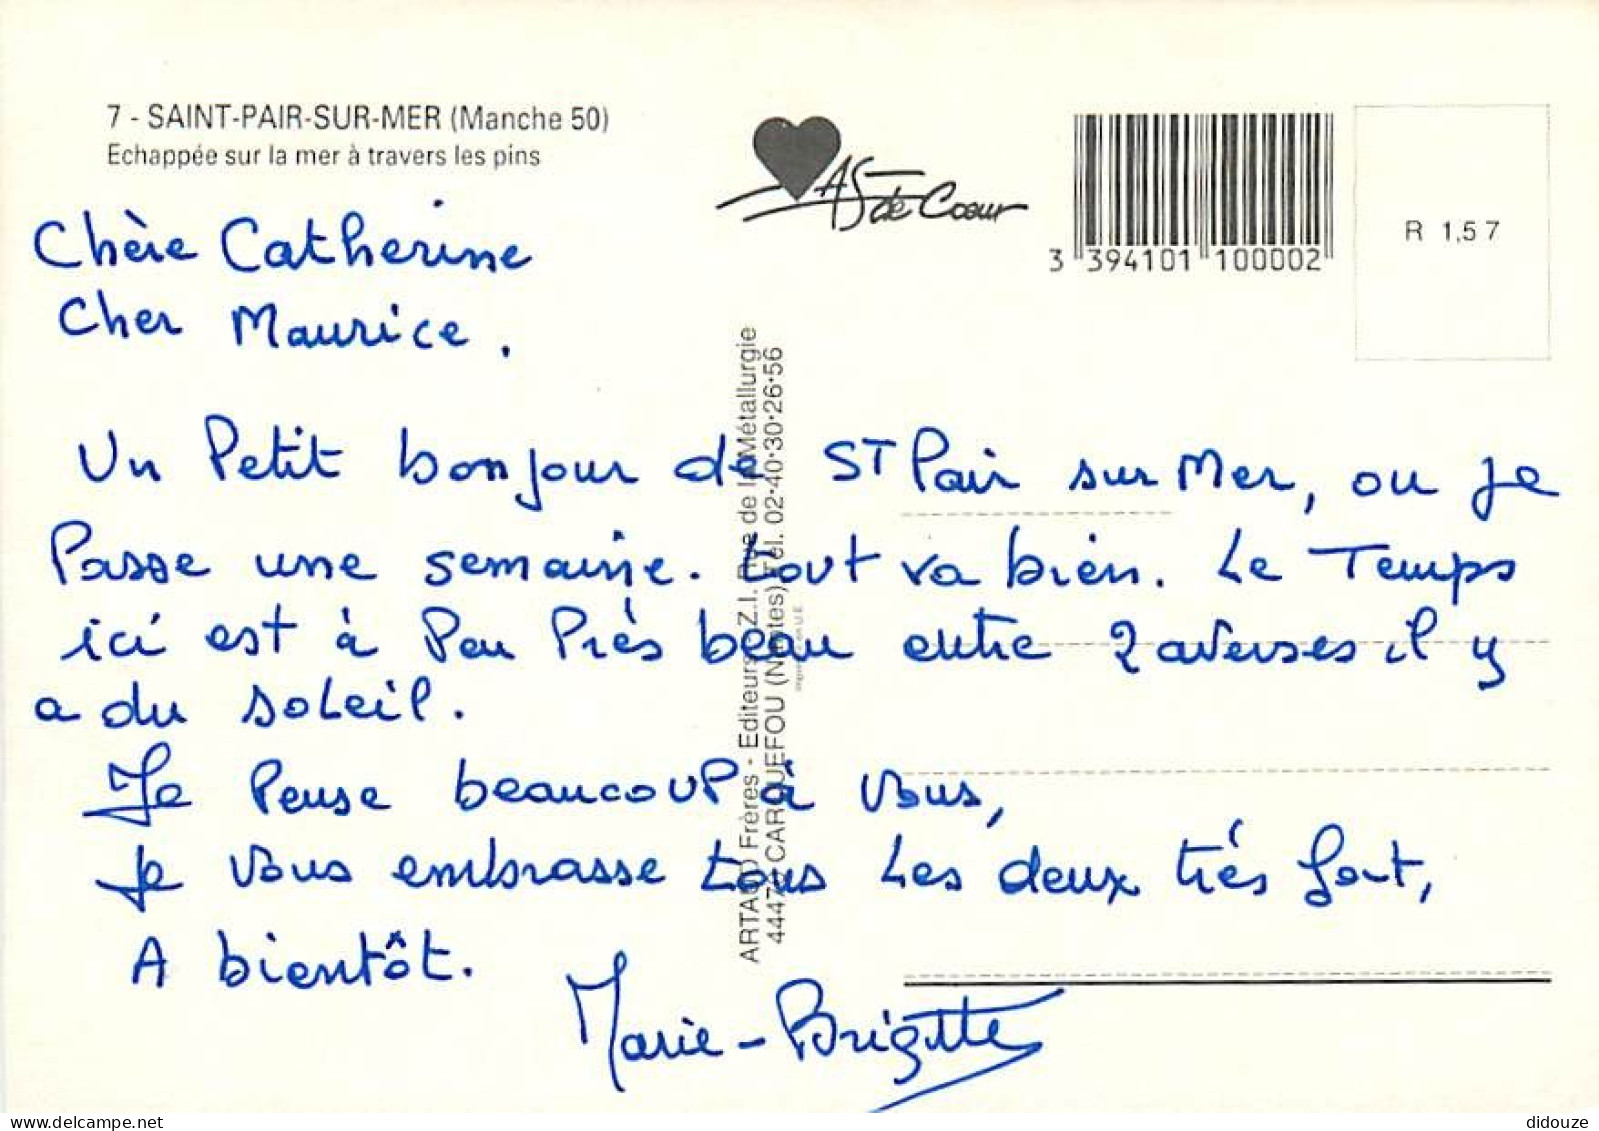 7 - SAINT-PAIR-SUR-MER (Manche 50)
Echappée sur la mer à travers les pins
AS de Coeur
3 394101 100002
R 1,57
Chère Catherine
Cher Maurice.
Un Petit bonjour de ST Pair sur Mer, ou je
Passe une semaine. tout va bien. Le Temps
ici est à Peu Près beau entre 2 averses il y
a du soleil.
Je Pense beaucoup à vous,
je vous embrasse tous les deux très fort,
A bientôt.
Marie-Brigitte
ARTAUD Frères - Editeurs Z.I. Rue de la Métallurgie
44470 CARQUEFOU (Nantes) Tél. 02·40·30·26·56
https://www.delcampe.net
didouze